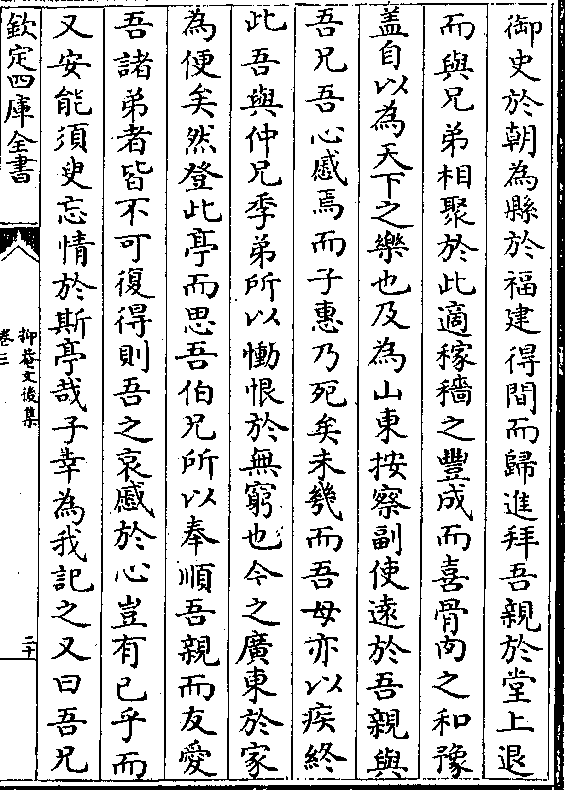 御史於朝為縣於福建得間而歸進拜吾親於堂上退
而與兄弟相聚於此適稼穡之豐成而喜骨肉之和豫
盖自以為天下之樂也及為山東按察副使遠於吾親與
吾兄吾心慼焉而子惠乃死矣未幾而吾母亦以疾終
此吾與仲兄季弟所以慟恨於無窮也今之廣東於家
為便矣然登此亭而思吾伯兄所以奉順吾親而友愛
吾諸弟者皆不可復得則吾之哀慼於心豈有已乎而
又安能須臾忘情於斯亭哉子幸為我記之又曰吾兄
欽定四庫全書
抑菴文後集
卷三
二十